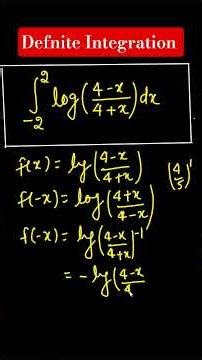 Defnite Integration
∫_{-2}^{2} log((4-x)/(4+x)) dx
f(x) = log((4-x)/(4+x)) (4/5)^1
f(-x) = log((4+x)/(4-x))
f(-x) = log((4-x)/(4+x))^{-1}
= - log((4-x)/4